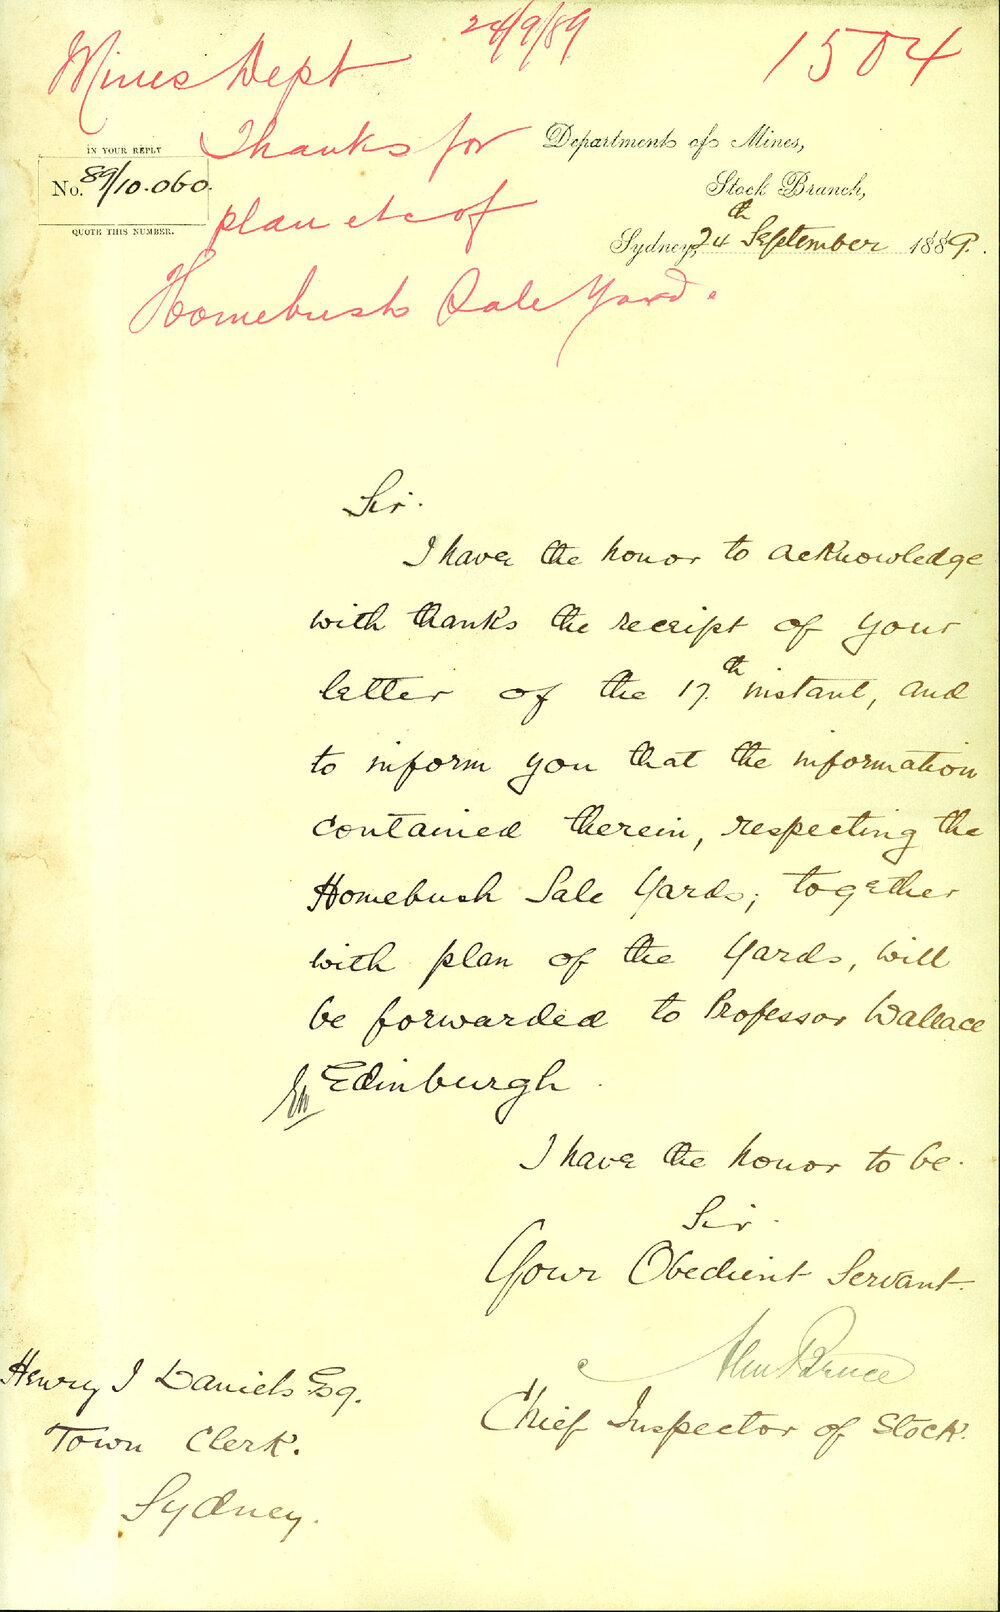 28/9/89
1504
Mines Dept
Thanks for
plan etc of
Homebush Sale Yard.
IN YOUR REPLY
No. 89/10.060.
QUOTE THIS NUMBER.
Department of Mines,
Stock Branch,
Sydney, 24th September 1889.
Sir.
I have the honor to acknowledge
with thanks the receipt of your
letter of the 17th instant, and
to inform you that the information
contained therein, respecting the
Homebush Sale Yards; together
with plan of the Yards, will
be forwarded to Professor Wallace
Edinburgh.
I have the honor to be.
Sir.
Your Obedient Servant.
Alex Bruce
Chief Inspector of Stock.
Henry J Daniels Esq.
Town Clerk.
Sydney.